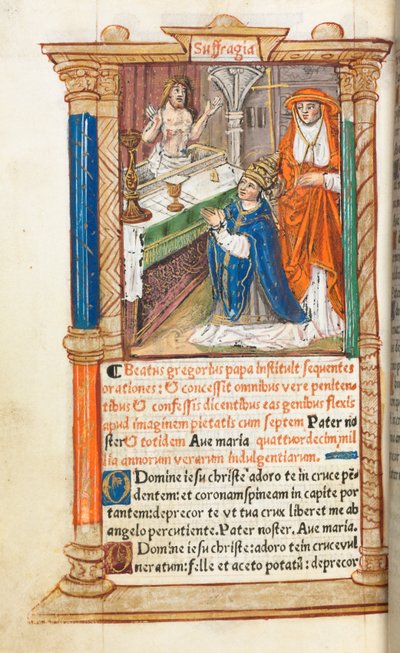 Suffragia
Beatus gregorius papa instituit sequentes
orationes: & concessit omnibus vere peniten-
tibus & confessis dicentibus eas genibus flexis
apud imaginem pietatis cum septem Pater no
ster & totidem Ave maria quattuordecim mil
lia annorum verarum indulgentiarum.
O Domine iesu christe adoro te in cruce pē-
dentem: et coronam spineam in capite por
tantem: deprecor te vt tua crux liberet me ab
angelo percutiente. Pater noster. Ave maria.
O Domine iesu christe: adoro te in cruce vul
neratum: felle et aceto potatū: deprecor